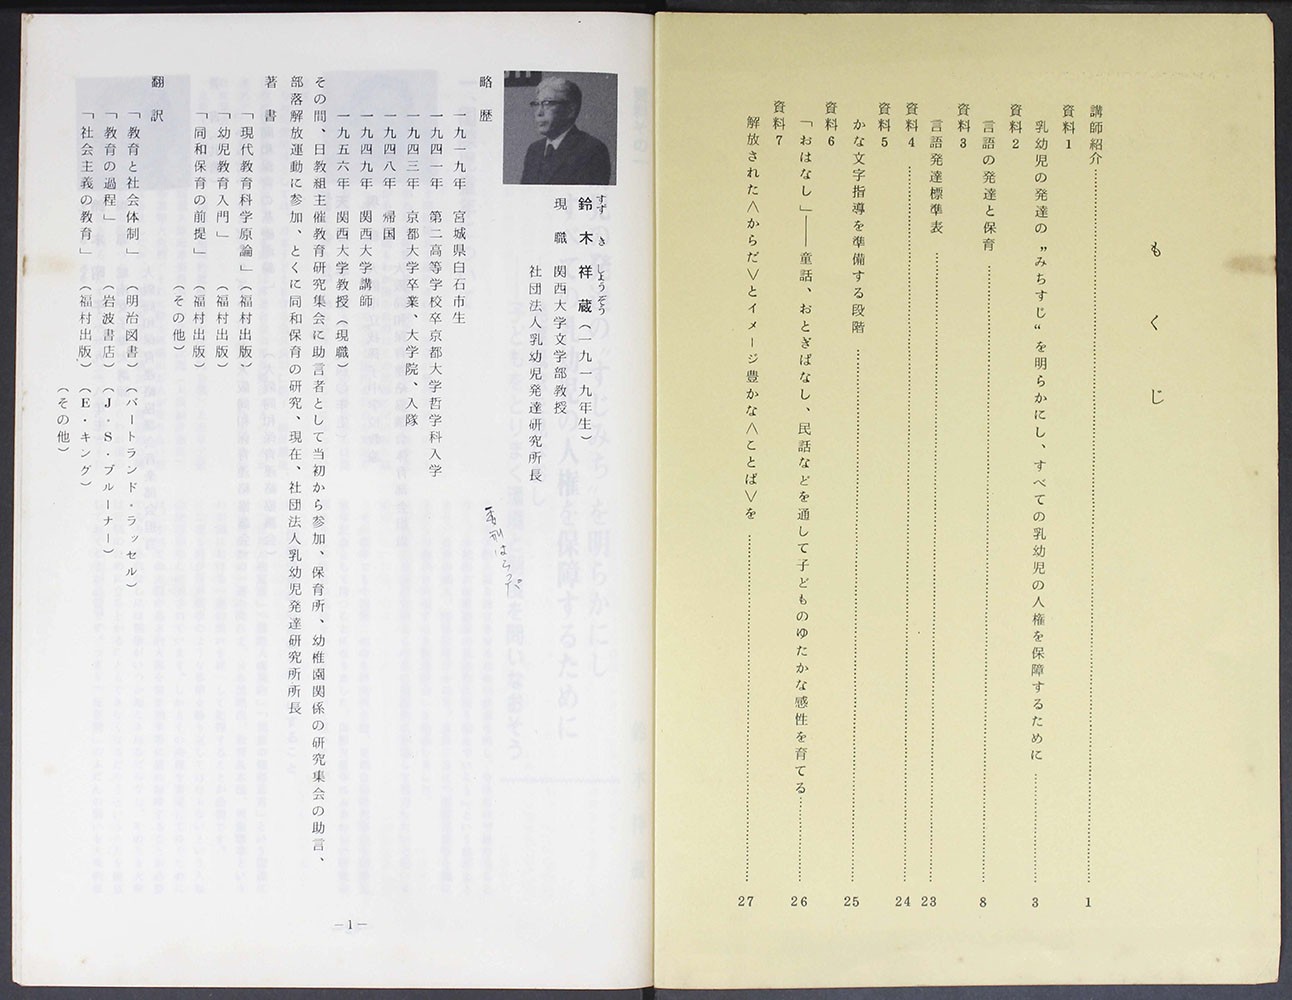 もくじ
講師紹介……1
資料1
乳幼児の発達の〝みちすじ〟を明らかにし、すべての乳幼児の人権を保障するために……3
資料2
言語の発達と保育……8
資料3
言語発達標準表……23
資料4……24
資料5
かな文字指導を準備する段階……25
資料6
「おはなし」――童話、おとぎばなし、民話などを通して子どものゆたかな感性を育てる……26
資料7
解放された〈からだ〉とイメージ豊かな〈ことば〉を……27
すず き しょうぞう
鈴木祥蔵(一九一九年生)
現職 関西大学文学部教授
社団法人乳幼児発達研究所長
略歴
一九一九年 宮城県白石市生
一九四一年 第二高等学校卒京都大学哲学科入学
一九四三年 京都大学卒業、大学院、入隊
一九四八年 帰国
一九四九年 関西大学講師
一九五六年 関西大学教授(現職)
その間、日教組主催教育研究集会に助言者として当初から参加、保育所、幼稚園関係の研究集会の助言、
部落解放運動に参加、とくに同和保育の研究、現在、社団法人乳幼児発達研究所所長
著書
「現代教育科学原論」(福村出版)
「幼児教育入門」(福村出版)
「同和保育の前提」(福村出版)
(その他)
翻訳
「教育と社会体制」(明治図書)(バートランド・ラッセル)
「教育の過程」(岩波書店)(J・S・ブルーナー)
「社会主義の教育」(福村出版)(E・キング)
(その他)
―1―